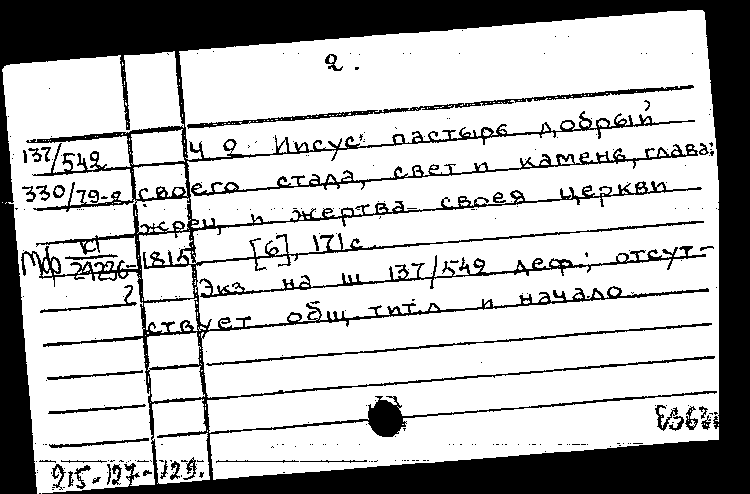 2.
137/542 ч 2 Иисус пастырь добрый
330/79-2 своего стада, свет и камень, глава;
жрец, и жертва своея церкви
Мф К1 1815. [6], 171 с
24236
2 Экз на ш 137/542 деф.; отсут-
ствует общ. тит. л и начало
215-127-129.